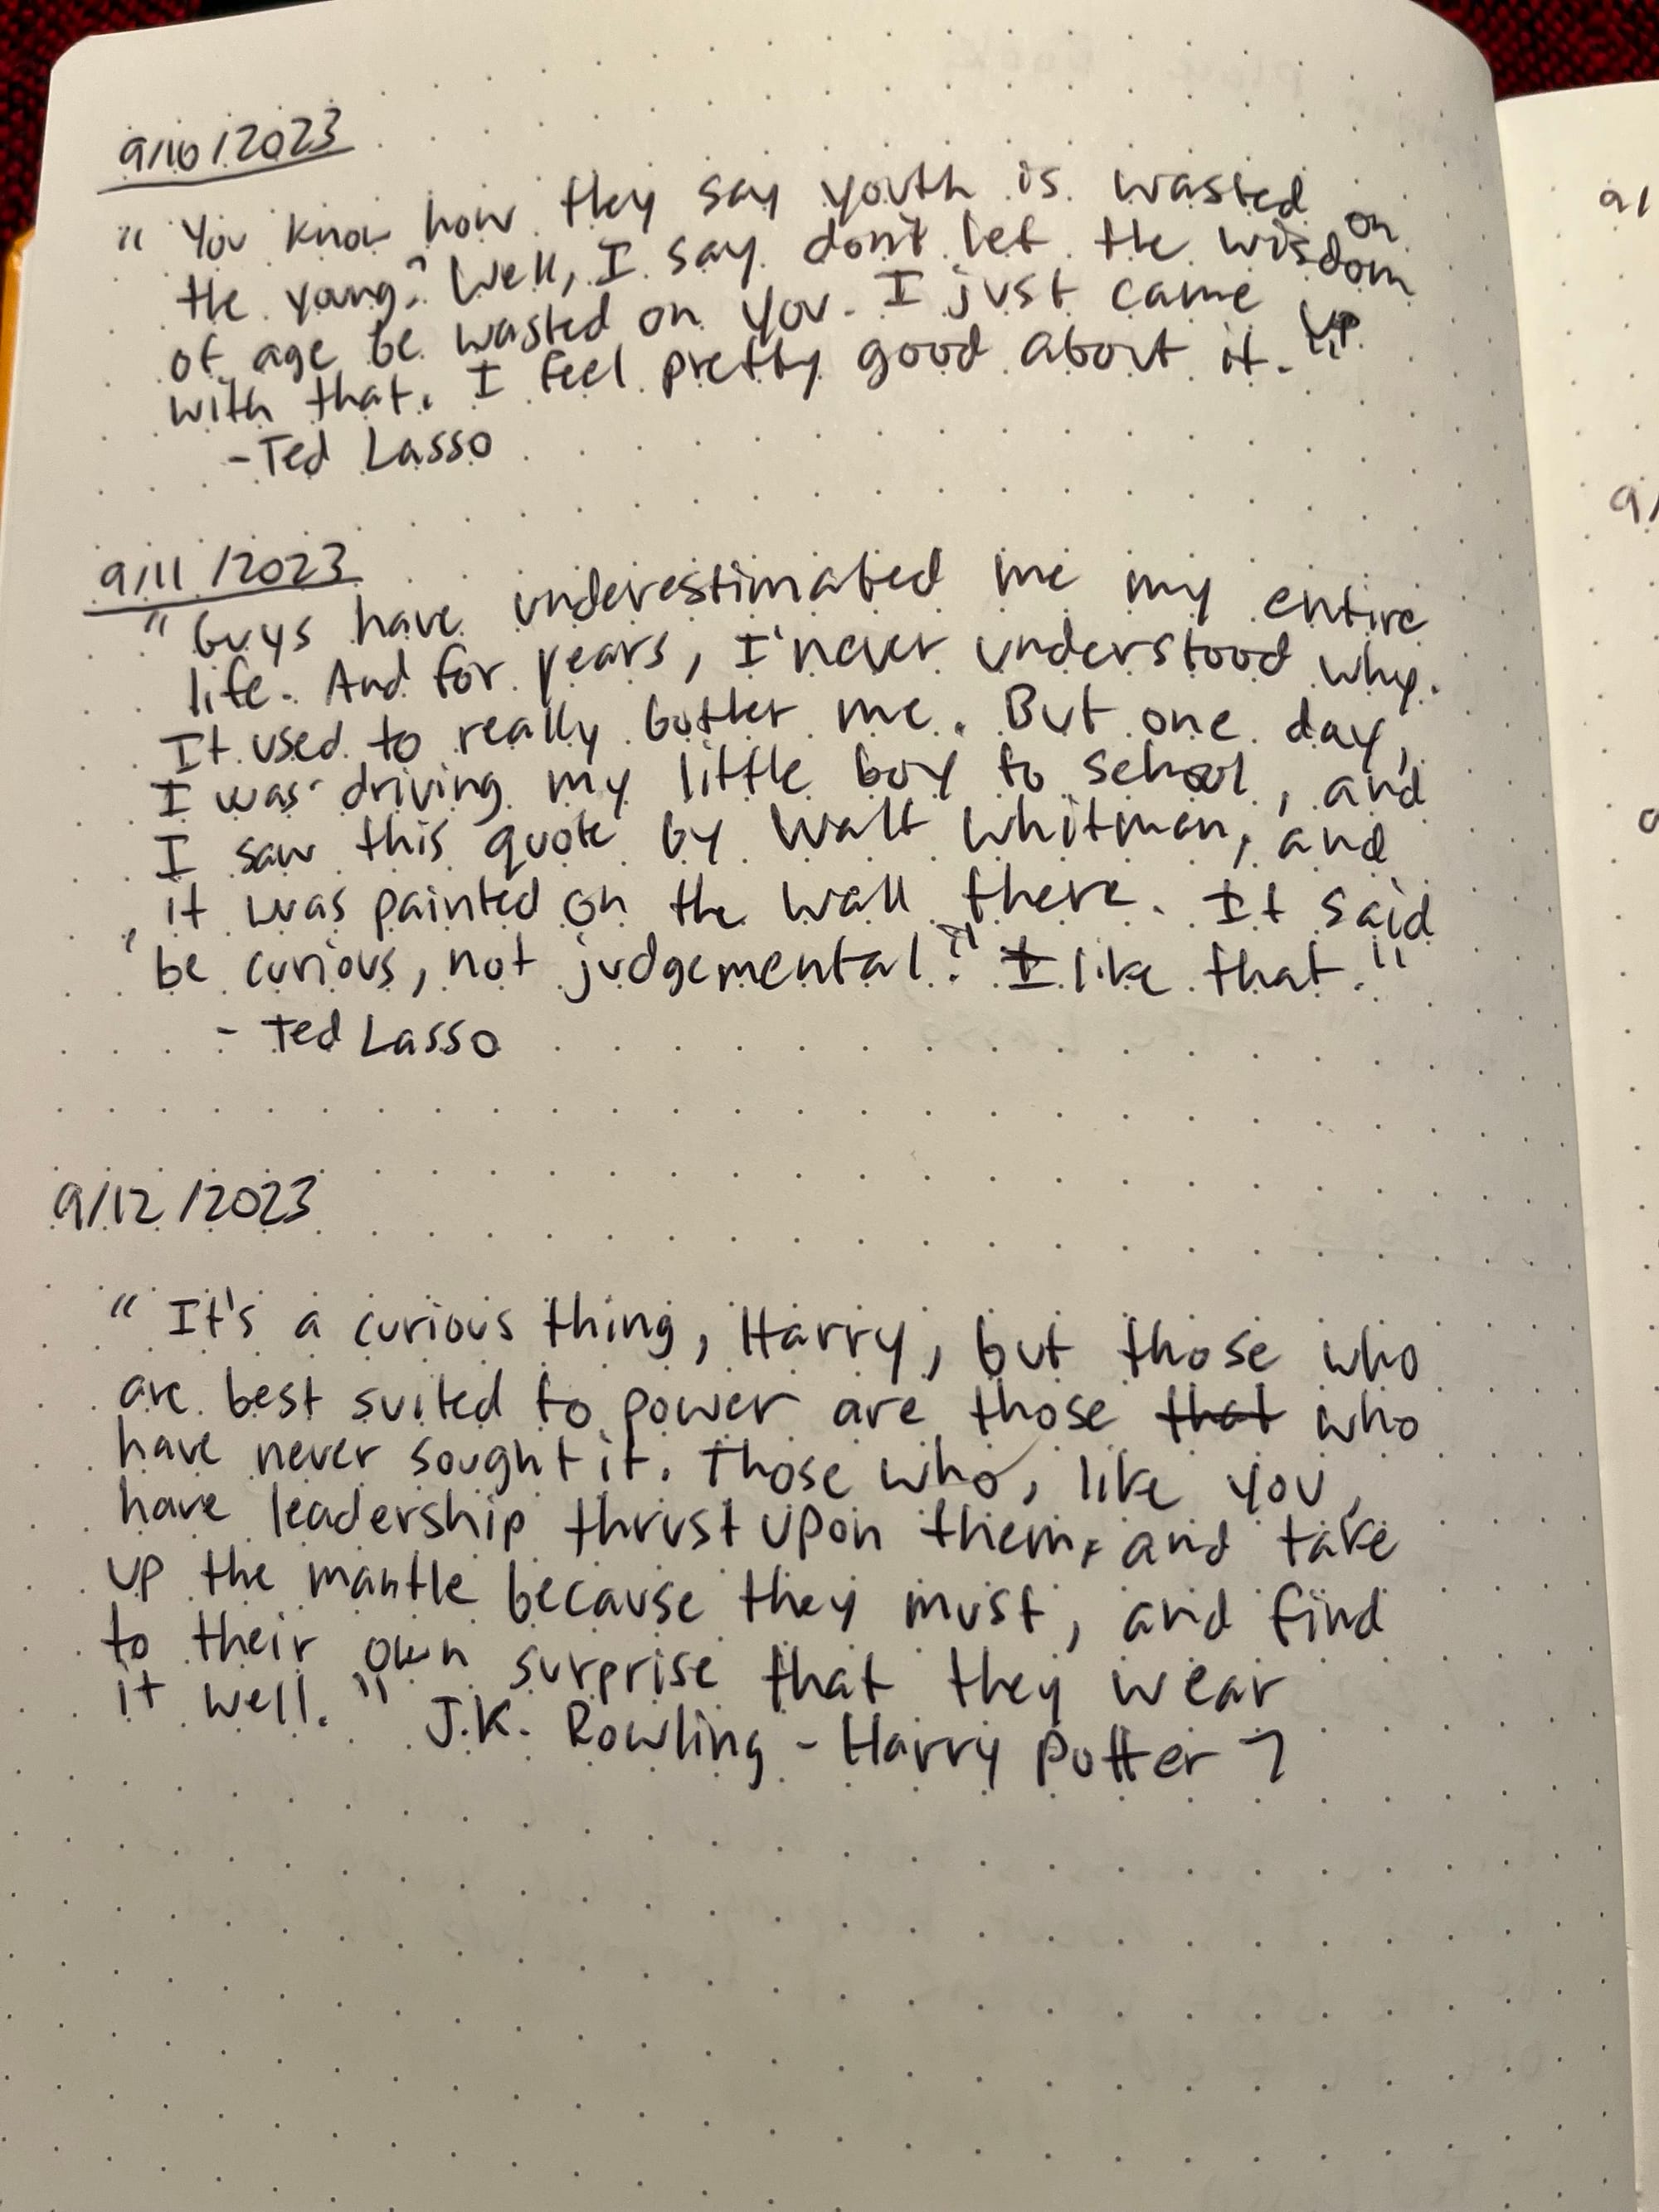 9/10/2023
"You know how they say youth is wasted on
the young? Well, I say don't let the wisdom
of age be wasted on you. I just came up
with that. I feel pretty good about it."
-Ted Lasso
9/11/2023
"Guys have underestimated me my entire
life. And for years, I never understood why.
It used to really bother me. But one day,
I was driving my little boy to school, and
I saw this quote by Walt Whitman, and
it was painted on the wall there. It said
'be curious, not judgemental." I like that."
- Ted Lasso
9/12/2023
"It's a curious thing, Harry, but those who
are best suited to power are those that who
have never sought it. Those who, like you,
have leadership thrust upon them, and take
up the mantle because they must, and find
to their own surprise that they wear
it well." J.K. Rowling - Harry Potter 7